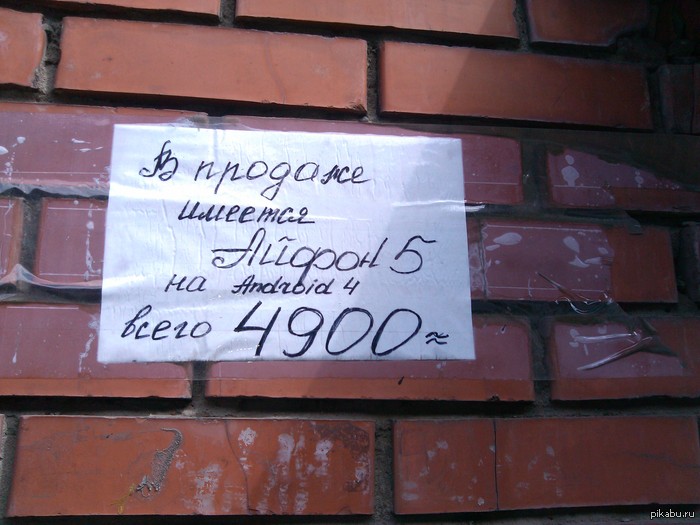 В продаже
имеется
Айфон 5
на Android 4
всего 4900=
pikabu.ru